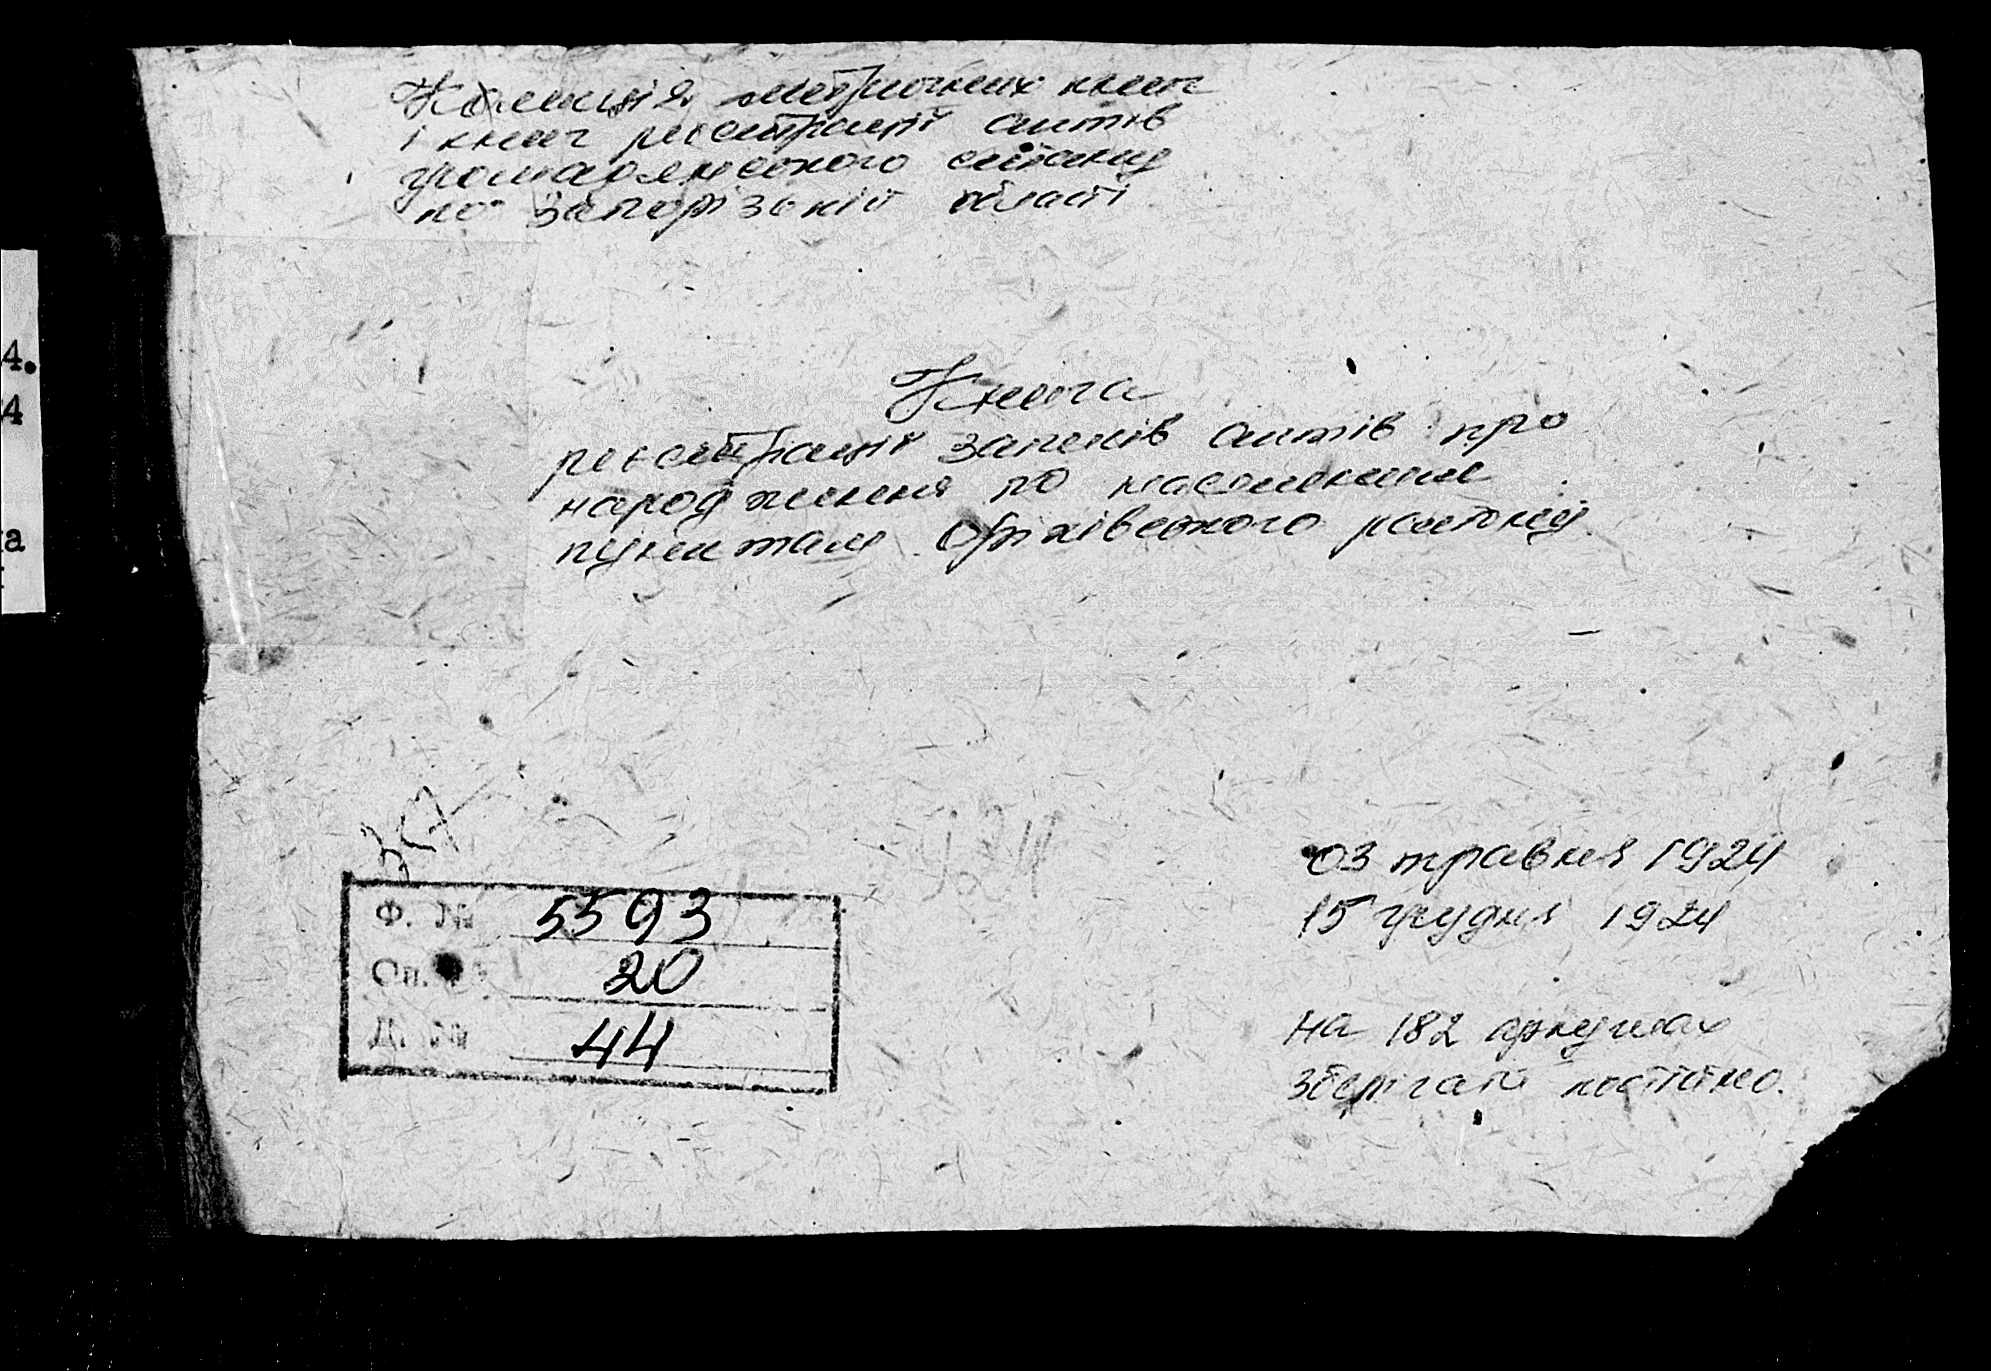 Колекція метричних книг
і книг реєстрації актів
громадянського стану
по Запорізькій області
Книга
реєстрації записів актів про
народження по населеним
пунктам Оріхівського району
347
424
Ф. № 5593
Оп. 20
Д. № 44
03 травня 1924
15 грудня 1924
на 182 аркушах
зберігати постійно.
4.
4
а